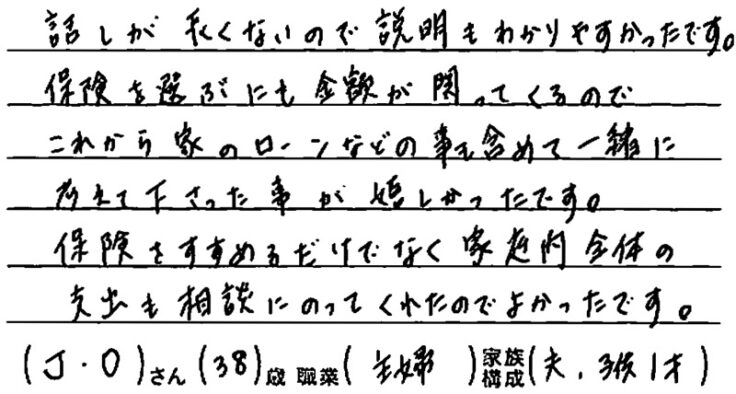 話しが長くないので説明もわかりやすかったです。
保険を選ぶにも金額が関ってくるので
これから家のローンなどの事も含めて一緒に
考えて下さった事が嬉しかったです。
保険をすすめるだけでなく家庭内全体の
支出も相談にのってくれたのでよかったです。
(J・O)さん(38)歳 職業(主婦)家族構成(夫、子供1才)